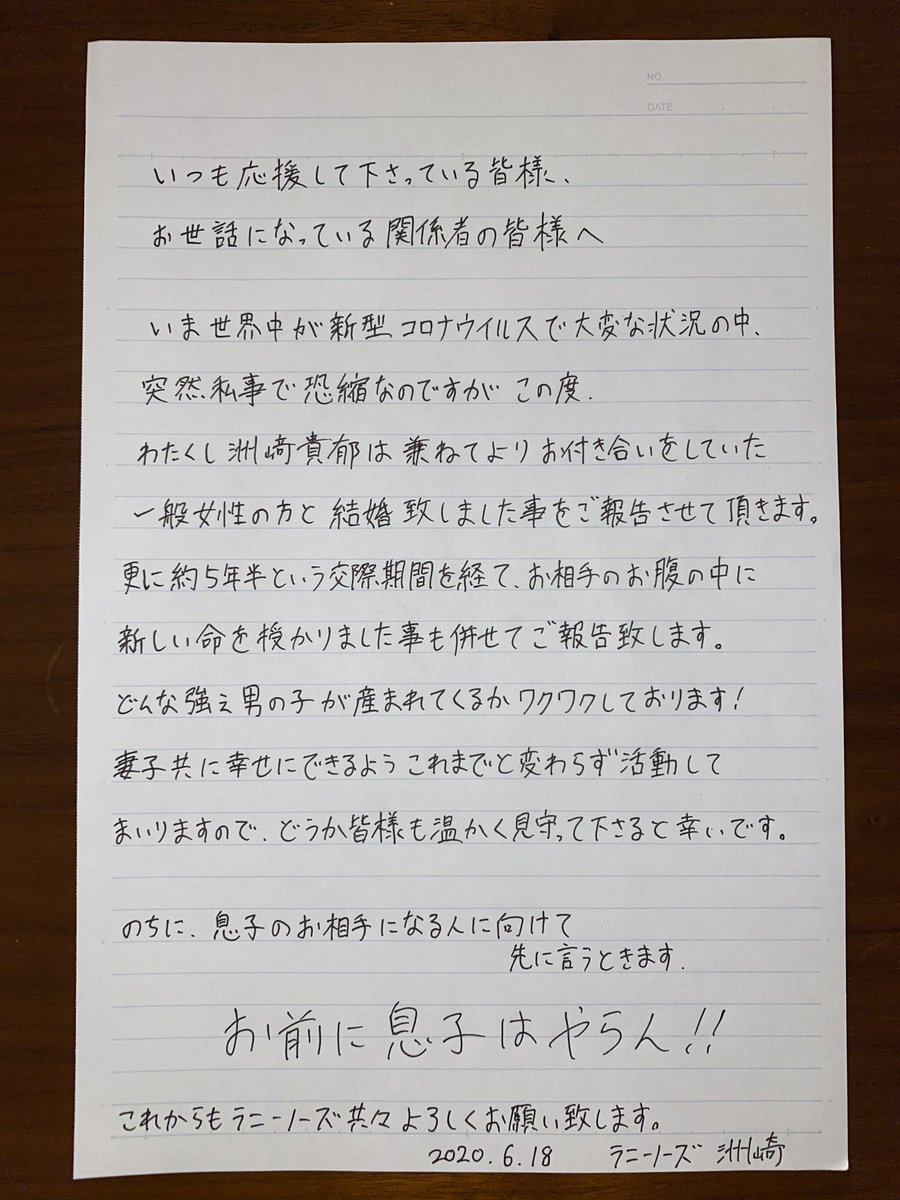 NO.
DATE
いつも応援して下さっている皆様、
お世話になっている関係者の皆様へ
いま世界中が新型コロナウイルスで大変な状況の中、
突然私事で恐縮なのですがこの度、
わたくし洲崎貴郁は兼ねてよりお付き合いをしていた
一般女性の方と結婚致しました事をご報告させて頂きます。
更に約5年半という交際期間を経て、お相手のお腹の中に
新しい命を授かりました事も併せてご報告致します。
どんな強え男の子が産まれてくるかワクワクしております!
妻子共に幸せにできるようこれまでと変わらず活動して
まいりますので、どうか皆様も温かく見守って下さると幸いです。
のちに、息子のお相手になる人に向けて
先に言うときます、
お前に息子はやらん!!
これからもラニーノーズ共々よろしくお願い致します。
2020.6.18 ラニーノーズ 洲崎